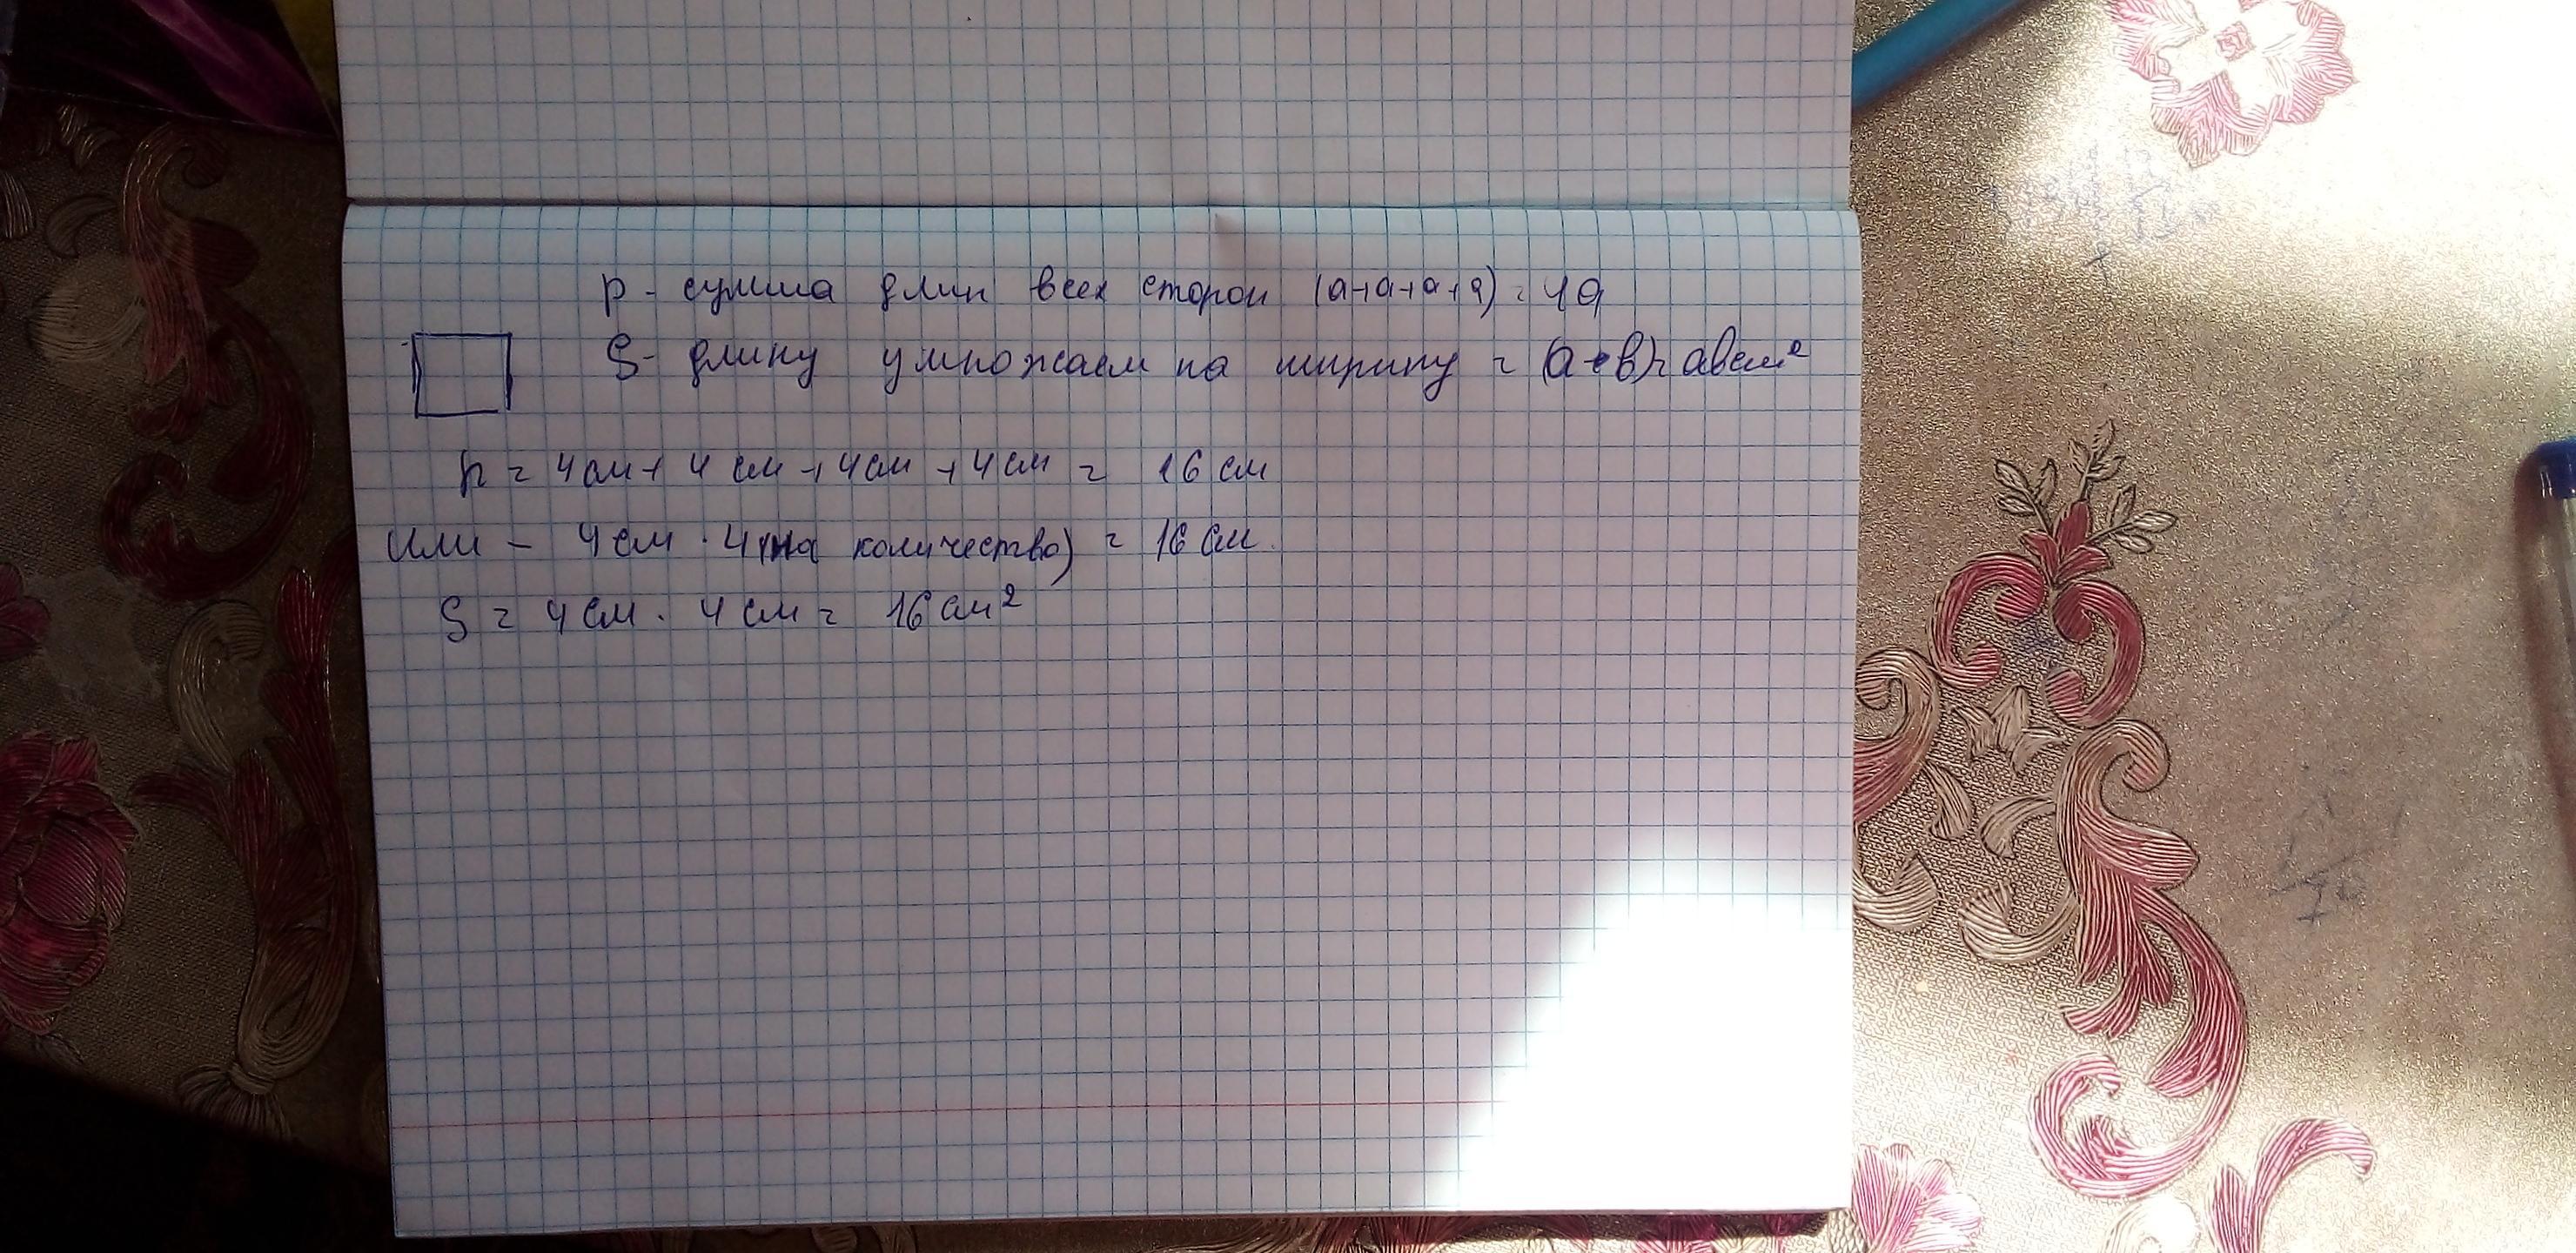 p - сумма длин всех сторон (a+a+a+a) = 4a
S - длину умножаем на ширину = (a·в)= авсм²
p = 4 см + 4 см + 4 см + 4 см = 16 см
или - 4 см · 4 (на количество) = 16 см.
S = 4 см · 4 см = 16 см²